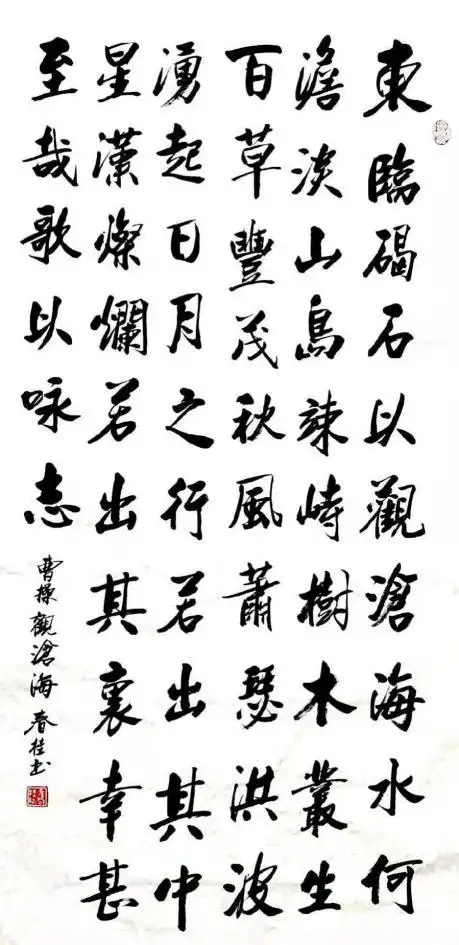 東臨碣石以觀滄海水何
澹淡山島竦峙樹木叢生
百草豐茂秋風蕭瑟洪波
湧起日月之行若出其中
星漢燦爛若出其裏幸甚
至哉歌以咏志
曹操觀滄海 春桂书